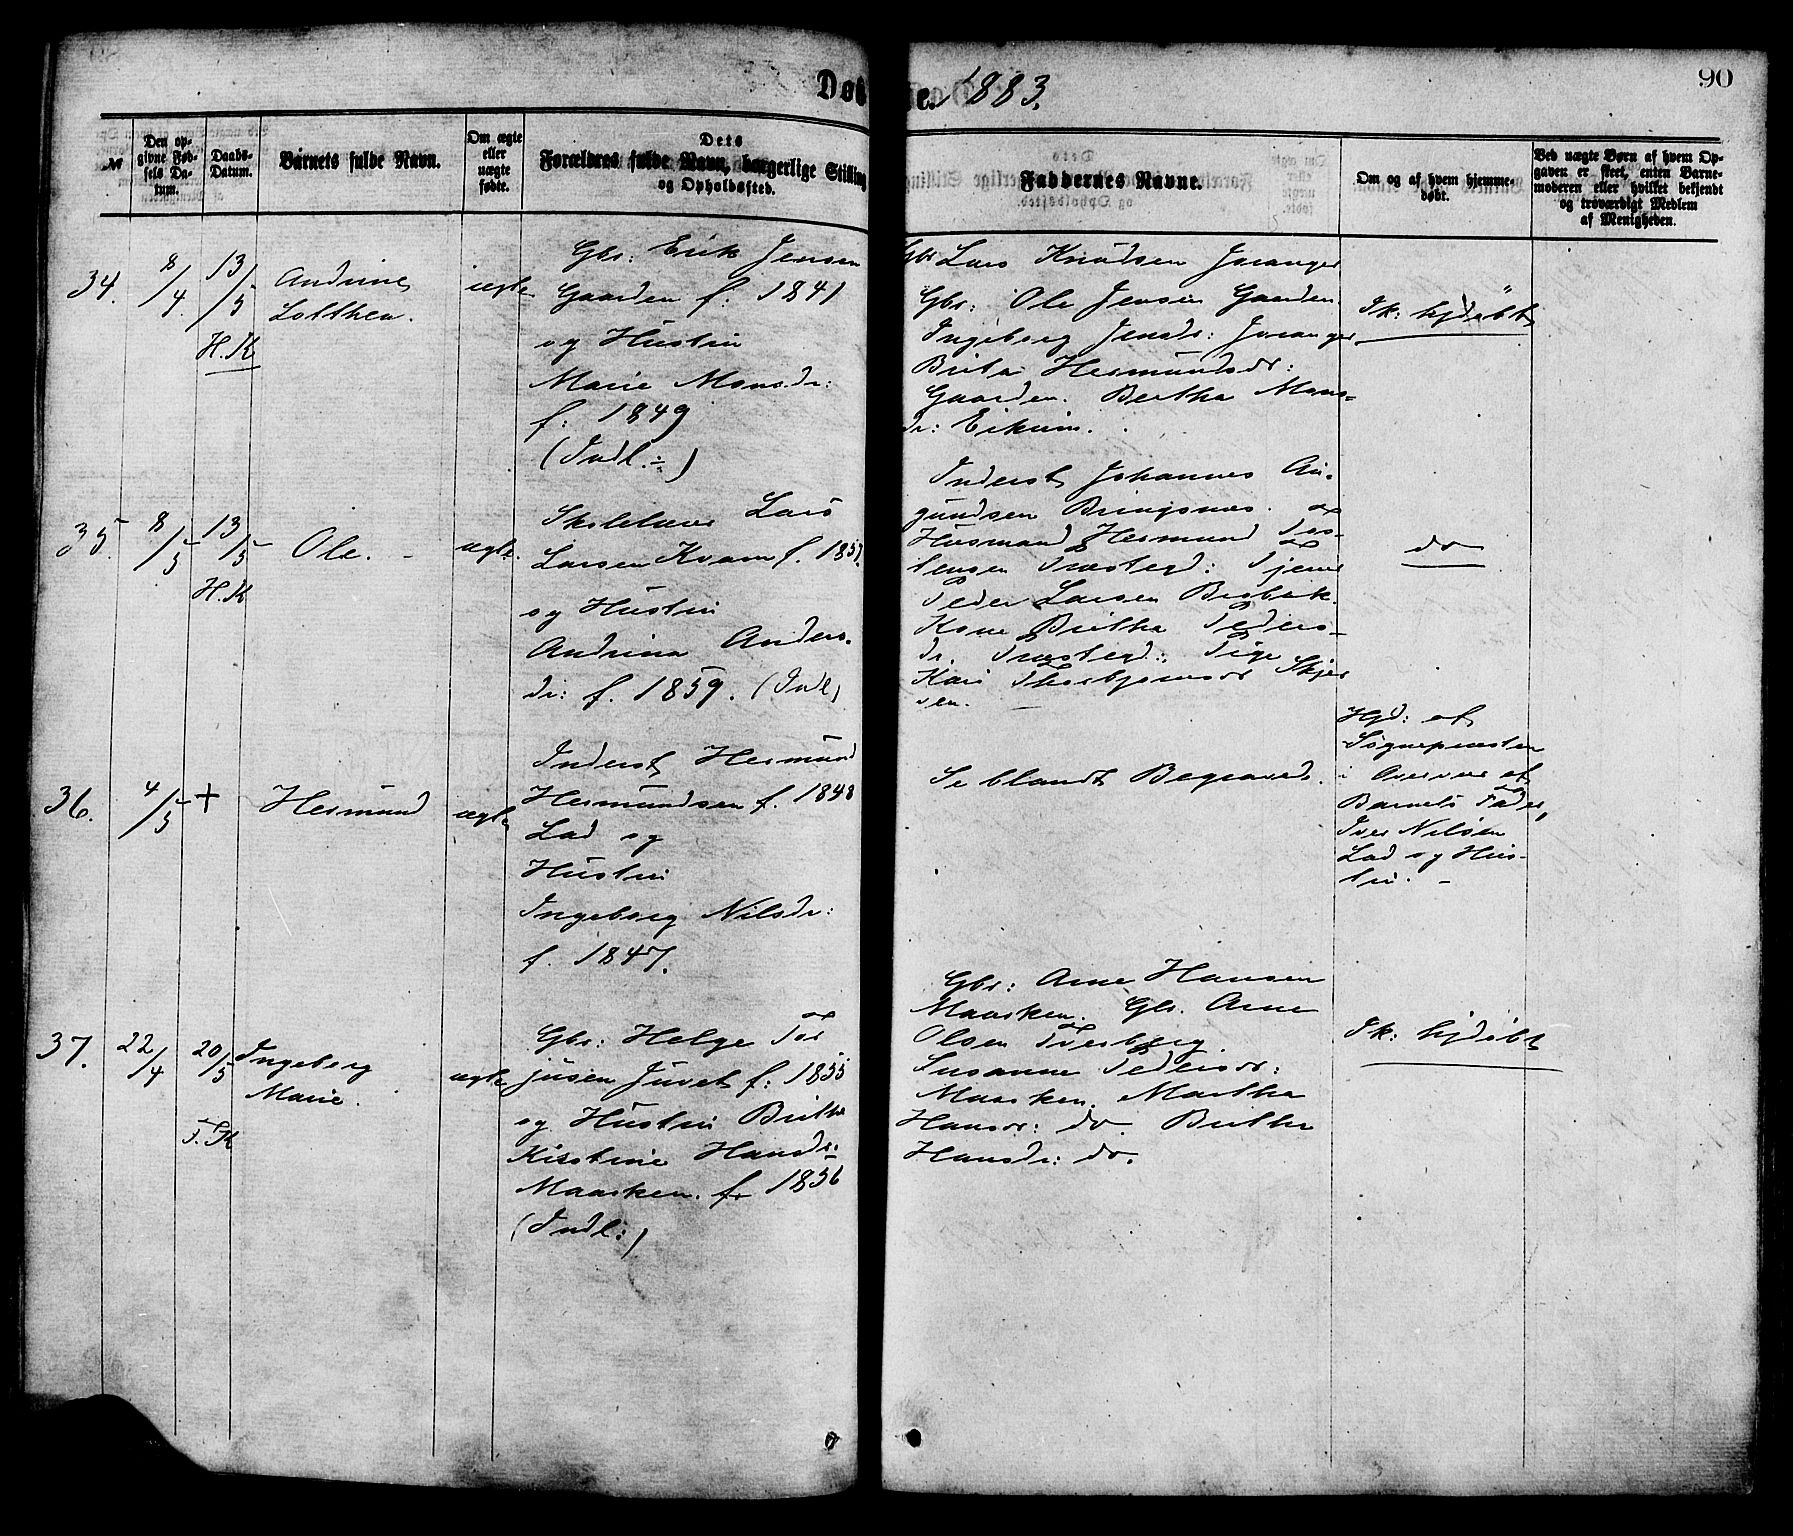 Døb
te. 1883.
90
№
Den op-
givne Fød-
sels Da-
tum.
Daabs-
Datum.
Barnets fulde Navn.
Om ægte
eller
uægte
født.
Dets
Forældres fulde Navn, borgerlige Stilling
og Opholdssted.
Faddernes Navne.
Om og af hvem hjemme-
døbt.
Ved uægte Børn af hvem Op-
gaven er skeet, enten Barne-
moderen eller hvilket bekjendt
og troværdigt Medlem
af Menigheden.
34.
8/4.
13/5
H. K
Andrine
Lotthea.
ægte
Gbr: Erik Jensen
Gaarden f: 1841
og Hustru
Marie Monsdr:
f: 1849
(Indl.:)
Gbr Lars Knudsen Joranger
Gbr: Ole Jensen Gaarden
Ingeborg Jensdr: Joranger
Brita Hermundsdr:
Gaarden. Bertha Mons-
dr: Eikum.
Ik: hjdøbt
35.
8/5
13/5
H. K
Ole. -
ægte
Skolelærer Lars
Larsen Kvam f. 1857.
og Hustru
Andrina Anders-
dr: f. 1859. (Indl)
Inderst Johannes Au-
gundsen Bringsnæs.
Husmand Hermund Tos-
tensen Præstegd: Tjener
Peder Larsen Bosheim
Kone Britha Peders-
dr. Præstegd: Pige
Kari Thorbjørnsdr Skjer
den.
do
36.
4/5
+
Hermund
ægte
Inderst Hermund
Hermundsen f. 1848
Lad og
Hustru
Ingeborg Nilsdr:
f. 1847.
Se blandt Begravede.
Hjd: af
Sognepræsten
i Overvær af
Barnets Fader,
Iver Nilsen
Lad og Hus-
tru. -
37.
22/4
20/5
F. K
Ingeborg
Marie.
ægte
Gbr: Helge Tor
jusen Juvet f: 1855
og Hustru Britha
Kirstine Hansdr:
Maasken. f. 1856
(Indl:)
Gbr: Arne Hansen
Maasken. Gbr. Arne
Olsen Tverberg
Susanne Pedersdr:
Maasken. Martha
Hansdr: do. Britha
Hansdr: do.
Ik: hjdøbt